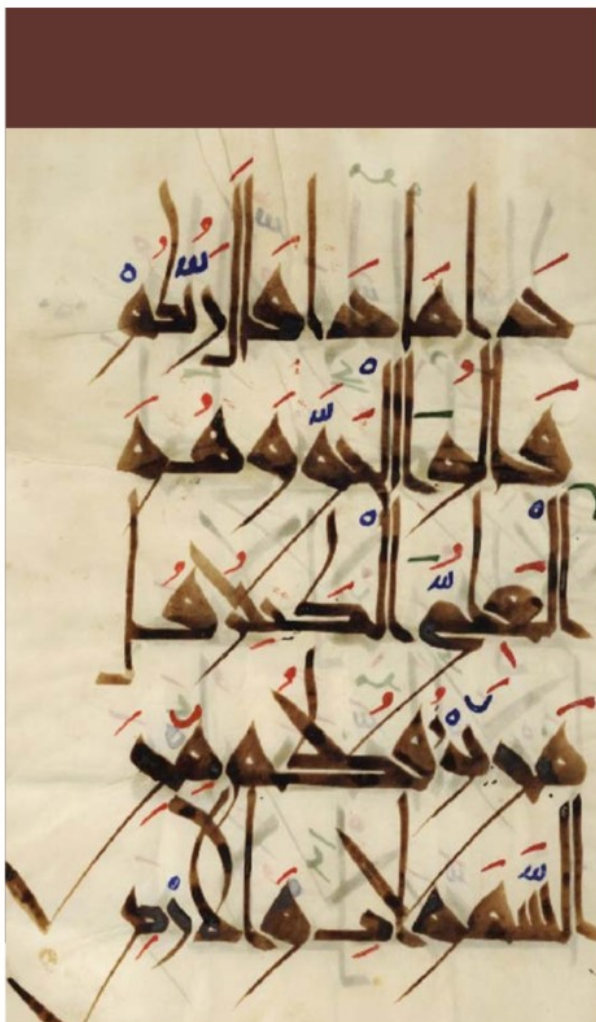 ماذا قال ربكم
قالوا الحق وهو
العلي الكبير قل
من يرزقكم من
السموات والارض